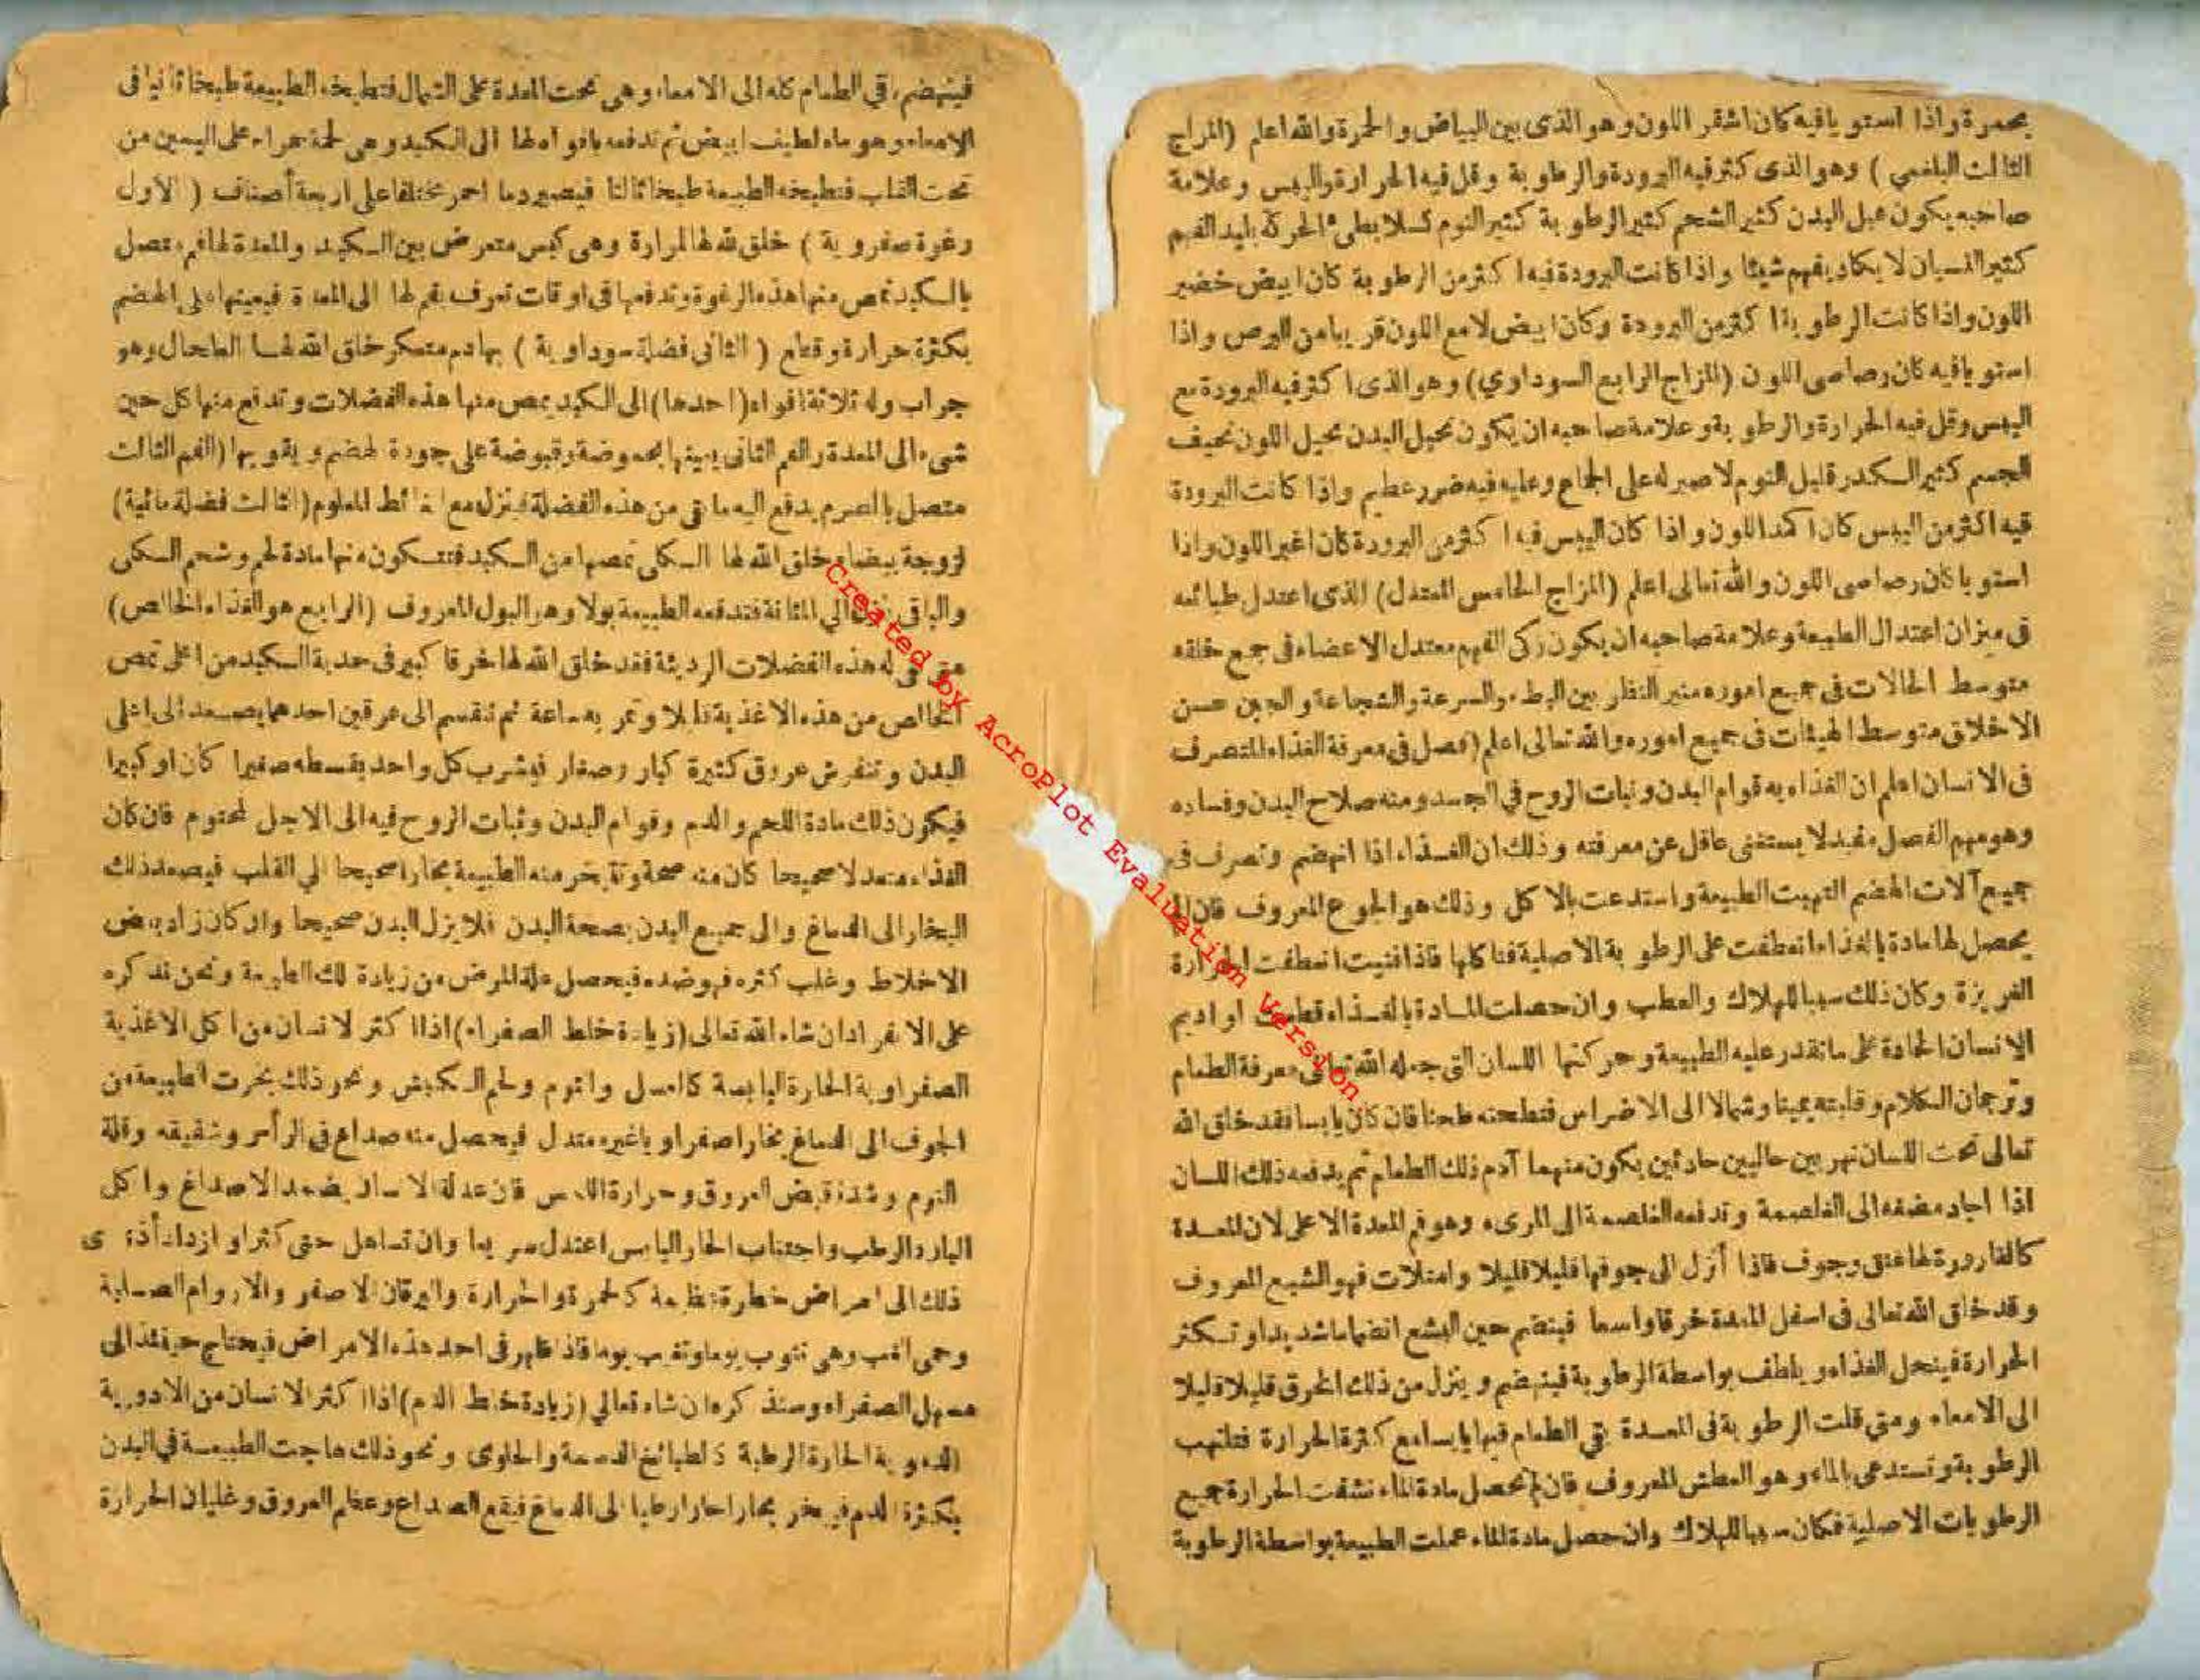 بحمرة واذا استويا فيه كان اشقر اللون وهو الذى بين البياض والحمرة والله اعلم (المزاج
الثالث البلغمي) وهو الذى كثر فيه البرودة والرطوبة وقل فيه الحرارة واليبس وعلامة
صاحبه يكون عبل البدن كثير الشحم كثير الرطوبة كثير النوم كسلا بطىء الحركة بليد الفهم
كثير النسيان لا يكاد يفهم شيئا واذا كانت البرودة فيه اكثر من الرطوبة كان ابيض خضير
اللون واذا كانت الرطوبة اكثر من البرودة وكان ابيض لامع اللون قريبا من البرص واذا
استويا فيه كان رصاصى اللون (المزاج الرابع السوداوي) وهو الذى اكثر فيه البرودة مع
اليبس وقل فيه الحرارة والرطوبة وعلامة صاحبه ان يكون نحيل البدن نحيل اللون نحيف
الجسم كثير الكدر قليل النوم لا صبر له على الجماع وعليه فيه ضرر عظيم واذا كانت البرودة
فيه اكثر من اليبس كان اكمد اللون واذا كان اليبس فيه اكثر من البرودة كان اغبر اللون واذا
استويا كان رصاصى اللون والله تعالى اعلم (المزاج الخامس المعتدل) الذى اعتدل طبائعه
فى ميزان اعتدال الطبيعة وعلامة صاحبه ان يكون زكى الفهم معتدل الاعضاء فى جمع خلقه
متوسط الحالات فى جميع اموره منير النظر بين البطء والسرعة والشجاعة والجبن حسن
الاخلاق متوسط الهيئات فى جميع اموره والله تعالى اعلم (فصل فى معرفة الغذاء المتصرف
فى الانسان اعلم ان الغذاء به قوام البدن وثبات الروح في الجسد ومنه صلاح البدن وفساده
وهو مهم الفصل مفيد لا يستغنى عاقل عن معرفته وذلك ان الغذاء اذا انهضم وتصرف فى
جميع آلات الهضم التهبت الطبيعة واستدعت بالاكل وذلك هو الجوع المعروف فان لم
يحصل لها مادة بالغذاء انعطفت على الرطوبة الاصلية فتاكلها فاذا فنيت انطفت الحرارة
الغريزة وكان ذلك سببا للهلاك والعطب وان حصلت المادة بالغذاء او اديم
الانسان الحادة على ما تقدر عليه الطبيعة وحركتها اللسان التى جعله الله تعالى معرفة الطعام
وترجمان الكلام وقلبته يمينا وشمالا الى الاضراس فتطحنه طحنا فان كان يابسا فقد خلق الله
تعالى تحت اللسان نهرين حاليين حادثين يكون منهما آدم ذلك الطعام ثم يدفعه ذلك اللسان
اذا اجاد مضغه الى الغلصمة وتدفعه الغلصمة الى المرىء وهو فم المعدة الاعلى لان المعدة
كالقارورة لها عنق وجوف فاذا أنزل الى جوفها قليلا قليلا وامتلات فهو الشبع المعروف
وقد خلق الله تعالى فى اسفل المعدة خرقا واسعا فينضم حين البشع انضماما شديدا وتكثر
الحرارة فينحل الغذاء ويلطف بواسطة الرطوبة فينهضم وينزل من ذلك الخرق قليلا قليلا
الى الامعاء ومتى قلت الرطوبة فى المعدة بقي الطعام فيها يابسا مع كثرة الحرارة فتلتهب
الرطوبة وتستدعى بالماء وهو العطش المعروف فان لم تحصل مادة الماء نشفت الحرارة جميع
الرطوبات الاصلية فكان سببا للهلاك وان حصل مادة الماء عملت الطبيعة بواسطة الرطوبة
فينهضم بقي الطعام كله الى الامعاء وهى تحت المعدة على الشمال فتطبخه الطبيعة طبخا ثانيا فى
الامعاء وهو ماء لطيف ابيض ثم تدفعه بافواهها الى الكبد وهى لحمة حمراء على اليمين من
تحت القلب فتطبخه الطبيعة طبخا ثالثا فيصير دما احمر مختلفا على اربعة أصناف (الاول
رغوة صفروية) خلق الله لها المرارة وهى كيس متعرض بين الكبد والمعدة لها فم متصل
بالكبد تمص منها هذه الرغوة وتدفعها فى اوقات تعرف بفم لها الى المعدة فيعينها على الهضم
بكثرة حرارة وقطع (الثانى فضلة سوداوية) بها دم متعكر خلق الله لها الطحال وهو
جراب وله ثلاثة افواه (احدها) الى الكبد يمص منها هذه الفضلات وتدفع منها كل حين
شىء الى المعدة والفم الثانى يعينها بحموضة وقبوضة على جودة لهضم ويقويها (الفم الثالث
متصل بالصرم يدفع اليه ما بقى من هذه الفضلة فينزل مع الغائط المعلوم (الثالث فضلة مائية)
لزوجة بيضاء خلق الله لها الكلى تمصها من الكبد فتتكون منها مادة لحم وشحم الكلى
والباقى الي المثانة فتدفعه الطبيعة بولا وهو البول المعروف (الرابع هو الغذاء الخالص)
متى له هذه الفضلات الرديئة فقد خلق الله لها خرقا كبير فى حدبة الكبد من اعلى تمص
الخالص من هذه الاغذية قليلا وتمر به ساعة ثم تنقسم الى عرقين احدهما يصعد الى اعلى
البدن وتنفرش عروق كثيرة كبار وصغار فيشرب كل واحد بقسطه صغيرا كان او كبيرا
فيكون ذلك مادة اللحم والدم وقوام البدن وثبات الروح فيه الى الاجل لمحتوم فان كان
الغذاء معتدلا صحيحا كان منه صحة وتتبخر منه الطبيعة بخارا صحيحا الي القلب فيصعد ذلك
البخار الى الدماغ والى جميع البدن بصحة البدن فلا يزل البدن صحيحا وان كان زاد بعض
الاخلاط وغلب كثره فهو ضده فيحصل علة المرض من زيادة تلك الطبيعة ونحن نذكره
على الانفراد ان شاء الله تعالى (زيادة خلط الصفراء) اذا اكثر لانسان من اكل الاغذية
الصفراوية الحارة اليابسة كالعسل والثوم ولحم الكبش ونحو ذلك بخرت الطبيعة من
الجوف الى الدماغ بخارا صفراويا غير معتدل فيحصل منه صداع فى الرأس وشقيقه وقلة
النوم وشدة قبض العروق وحرارة اللمس فان عدله الانسان بضمد الاصداغ واكل
البارد الرطب واجتناب الحار اليابس اعتدل سريعا وان تساهل حتى كثر او ازداد أذى
ذلك الى امراض خطرة عظيمة كالحمرة والحرارة واليرقان الاصفر والاروام الصلبة
وحمى الغب وهى تنوب يوما وتغيب يوما فاذا ظهر فى احد هذه الامراض فيحتاج حينئذ الى
مسهل الصفراء وسنذكره ان شاء تعالي (زيادة خلط الدم) اذا اكثر الانسان من الادورية
الدموية الحارة الرطبة كالطبائخ الدسمة والحلوى ونحو ذلك هاجت الطبيعة في البدن
بكثرة الدم فيبخر بخارا حارا رطبا الى الدماغ فيقع الصداع وعظم العروق وغليان الحرارة
Created by AcroPlot Evaluation Version.